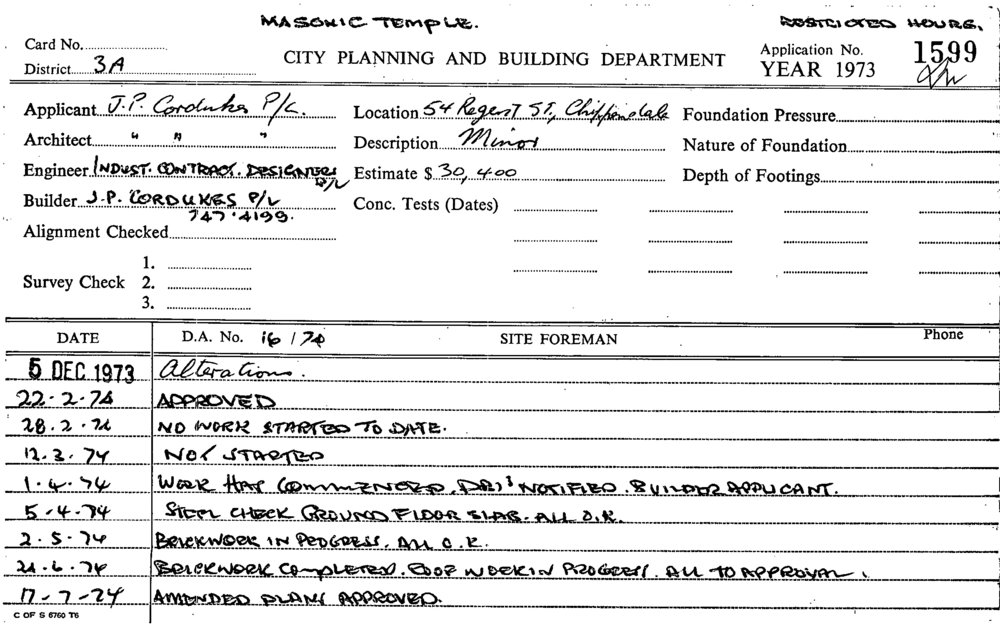 MASONIC TEMPLE.
RESTRICTED HOURS.
Card No.
District 3A
CITY PLANNING AND BUILDING DEPARTMENT
Application No. 1599
YEAR 1973
Applicant J.P. Cordukes P/L.
Location 54 Regent St., Chippendale
Foundation Pressure
Architect " " "
Description Minor
Nature of Foundation
Engineer INDUST. CONTRACT. DESIGNERS P/L
Estimate $ 30,400
Depth of Footings
Builder J.P. CORDUKES P/L
747.4199.
Conc. Tests (Dates)
Alignment Checked
Survey Check
1.
2.
3.
DATE D.A. No. 16/74 SITE FOREMAN Phone
5 DEC 1973 Alterations.
22-2-74 APPROVED
28.2.74 NO WORK STARTED TO DATE.
12.3.74 NOT STARTED
1.4.74 WORK HAS COMMENCED. NOTIFIED. BUILDER APPLICANT.
5-4-74 STEEL CHECK GROUND FLOOR SLAB. ALL O.K.
2-5-74 BRICKWORK IN PROGRESS. ALL O.K.
21-6-74 BRICKWORK COMPLETED. ROOF WORK IN PROGRESS. ALL TO APPROVAL.
17-7-74 AMENDED PLANS APPROVED.
C OF S 6760 T6